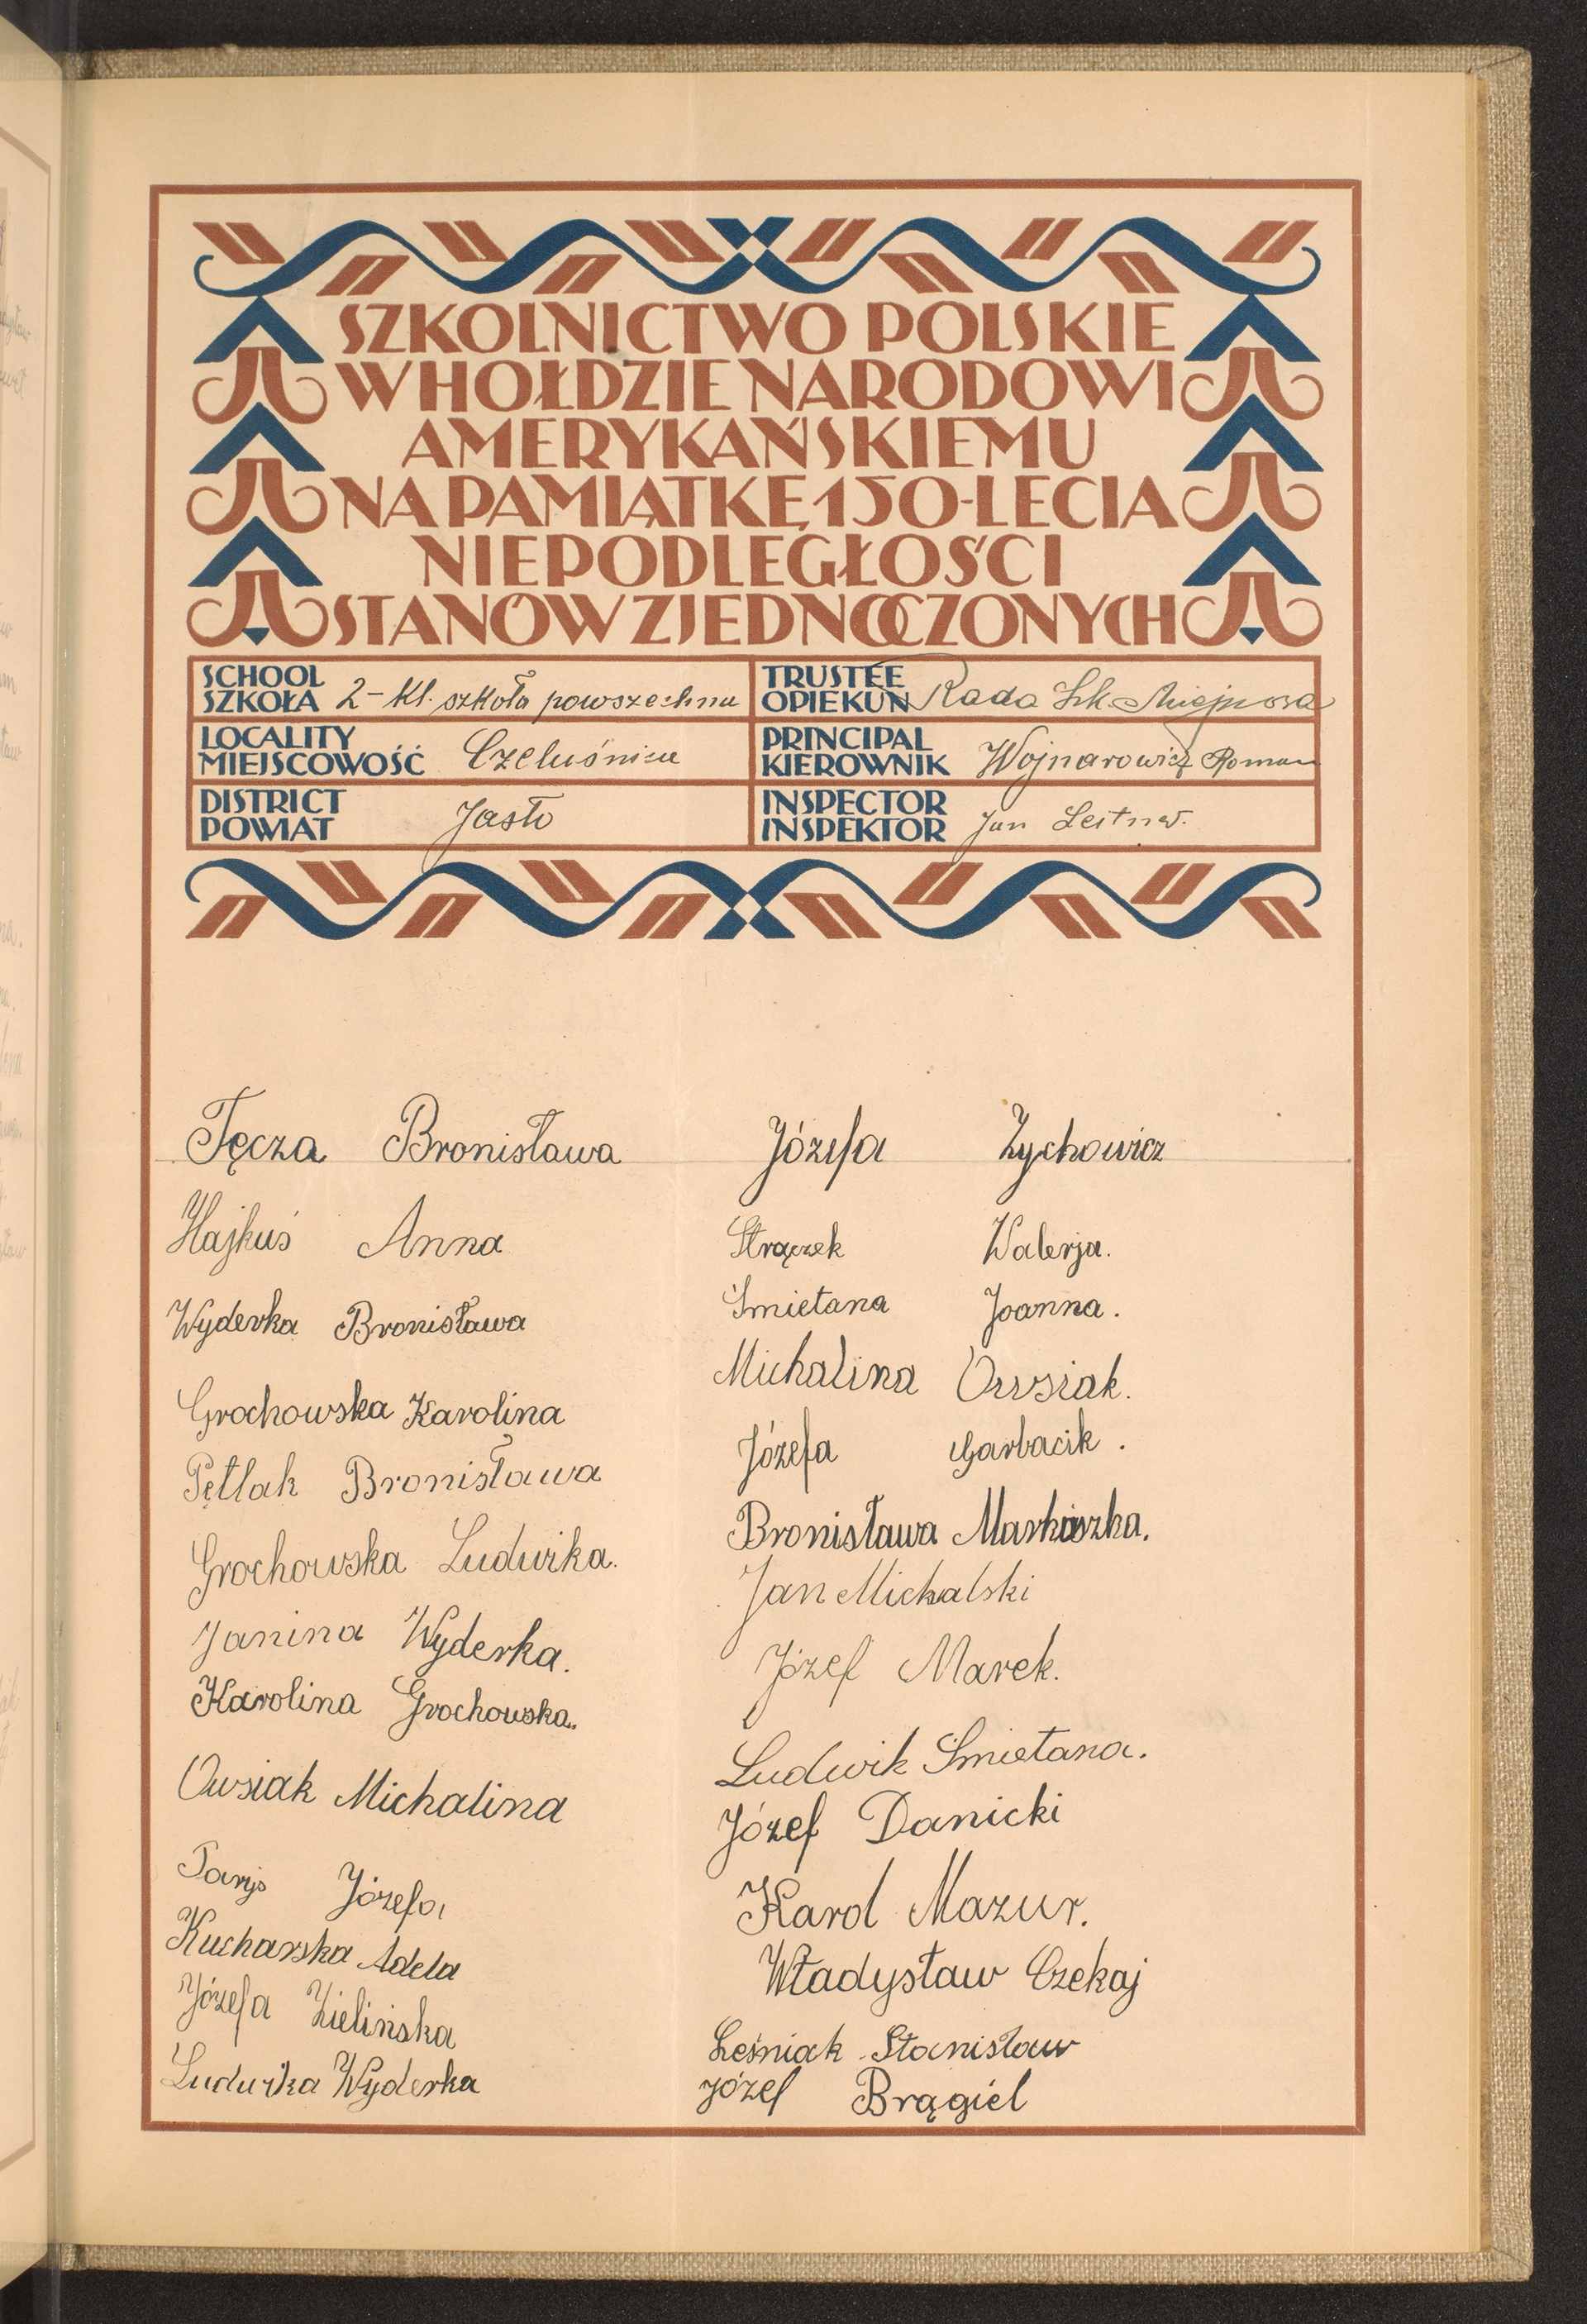 SZKOLNICTWO POLSKIE
W HOŁDZIE NARODOWI
AMERYKAŃSKIEMU
NA PAMIĄTKĘ 150-LECIA
NIEPODLEGŁOŚCI
STANÓW ZJEDNOCZONYCH
SCHOOL
SZKOŁA 2-kl. szkoła powszechna
TRUSTEE
OPIEKUN Rada Szk. Miejscowa
LOCALITY
MIEJSCOWOŚĆ Czeluśnica
PRINCIPAL
KIEROWNIK Wojnarowicz Roman
DISTRICT
POWIAT Jasło
INSPECTOR
INSPEKTOR Jan Leitner.
Tęcza Bronisława
Hajkuś Anna
Wyderka Bronisława
Grochowska Karolina
Pętlak Bronisława
Grochowska Ludwika.
Janina Wyderka.
Karolina Grochowska.
Owsiak Michalina
Józefa
Kucharska Adela
Józefa Zielińska
Ludwika Wyderka
Józefa Zychowicz
Strączek Walerja.
Śmietana Joanna.
Michalina Owsiak.
Józefa Garbacik.
Bronisława
Jan Michalski
Józef Marek.
Ludwik Śmietana.
Józef Danicki
Karol Mazur.
Władysław Czekaj
Leśniak Stanisław
Józef Brągiel